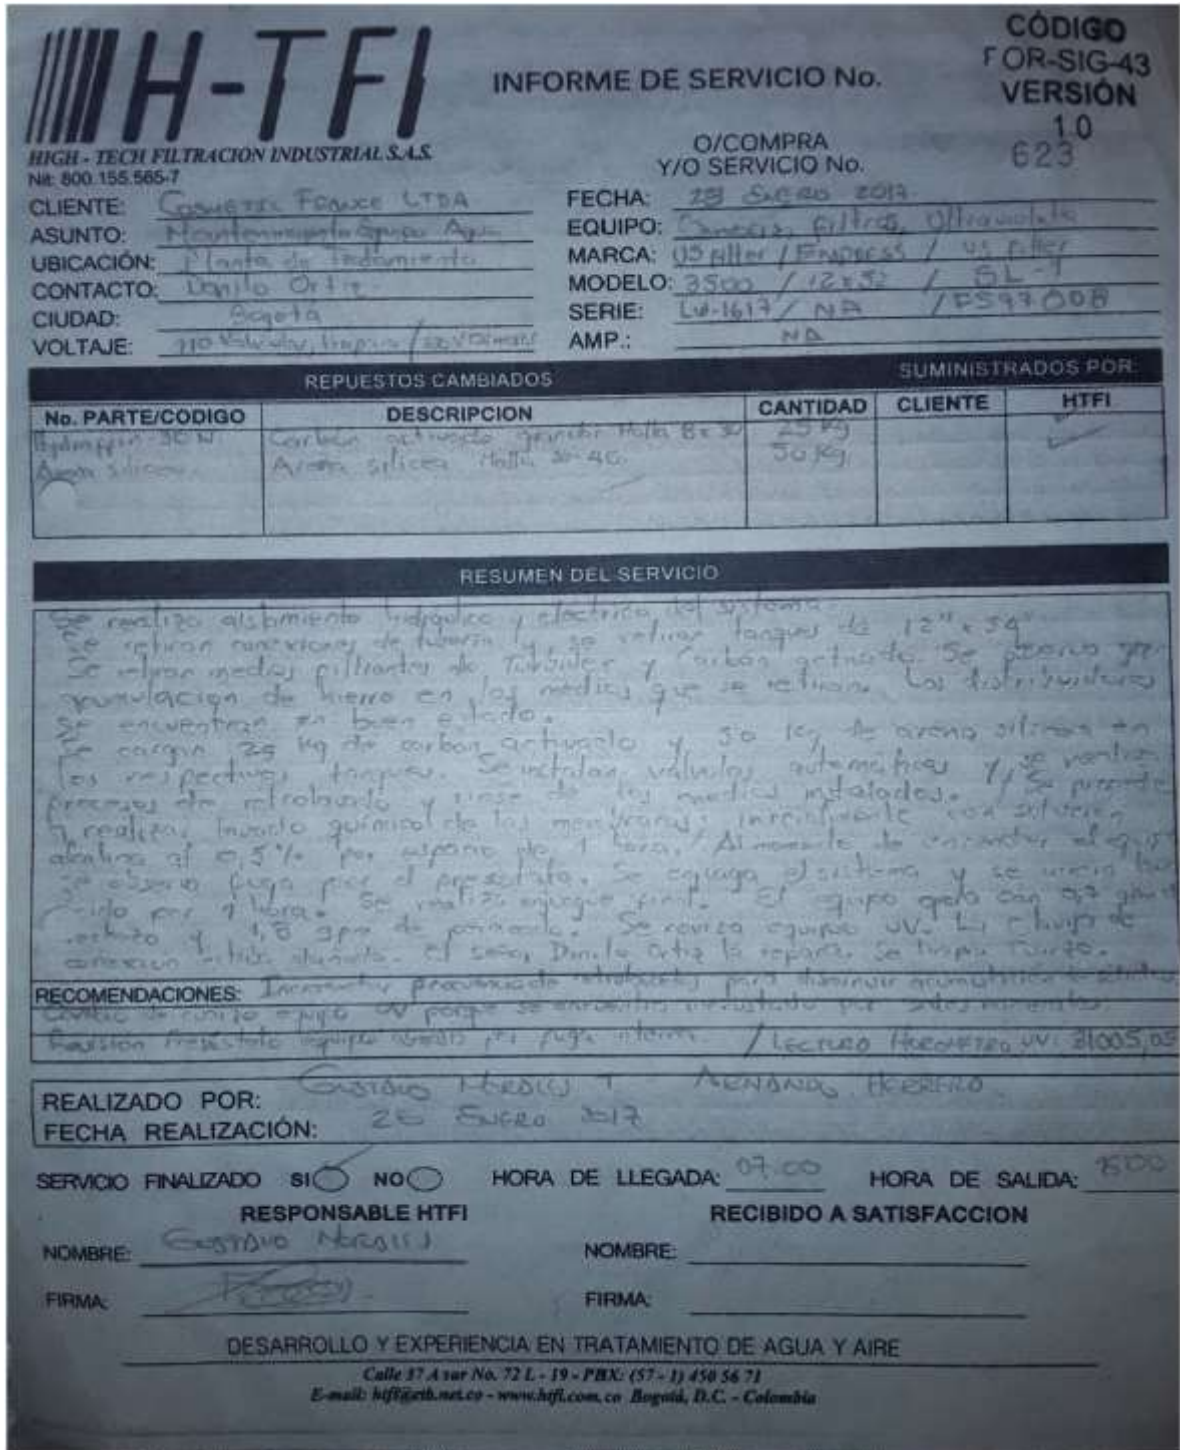 H-TFI
HIGH - TECH FILTRACION INDUSTRIAL S.A.S.
Nit: 800.155.565-7
INFORME DE SERVICIO No.
CÓDIGO
FOR-SIG-43
VERSIÓN
1.0
O/COMPRA
Y/O SERVICIO No.
623
CLIENTE: France LTDA
ASUNTO: Mantenimiento Equipo Agua
UBICACIÓN: Planta de
CONTACTO: Danilo Ortiz
CIUDAD: Bogotá
VOLTAJE: 110
FECHA: Enero 2017
EQUIPO: Filtros, Ultravioleta
MARCA: US Filter / / US Filter
MODELO: 3500 / / SL
SERIE: / NA /
AMP.: NA
REPUESTOS CAMBIADOS
SUMINISTRADOS POR:
No. PARTE/CODIGO DESCRIPCION CANTIDAD CLIENTE HTFI
Carbón activado granular Malla 8x30 25 Kg
Arena silicea Arena silicea Malla 50 Kg
RESUMEN DEL SERVICIO
Se realiza aislamiento hidráulico y eléctrico del sistema.
Se retiran conexiones de tubería y se retiran tanques de 12" x
Se retiran medios filtrantes de Turbidex y Carbón activado. Se observa gran
acumulación de hierro en los medios que se retiran. Los distribuidores
se encuentran en buen estado.
Se cargan 25 kg de carbón activado y 50 kg de arena silicea en
los respectivos tanques. Se instalan válvulas automáticas y se
procesos de retrolavado y de los medios instalados. Se procede
a realizar lavado químico de las membranas, inicialmente con solución
alcalina al 0,5% por espacio de 1 hora. Al momento de encender el equipo
se observa fuga por el presostato. Se enjuaga el sistema y se inicia
por 1 hora. Se realiza enjuague final. El equipo queda con
rechazo y 1,8 gpm de permeado. Se revisa equipo UV. La clavija de
conexión estaba dañada. El señor Danilo Ortiz la repara. Se limpia cuarzo.
RECOMENDACIONES: Incrementar frecuencia de retrolavados para disminuir acumulación de
Cambio de cuarzo equipo UV porque se encuentra incrustado por sales minerales.
Revisión Presostato equipo por fuga interna. / Lectura Horometro UV: 31005,05
REALIZADO POR: Gustavo Morales T - Herrera
FECHA REALIZACIÓN: Enero 2017
SERVICIO FINALIZADO SI NO HORA DE LLEGADA: 07:00 HORA DE SALIDA:
RESPONSABLE HTFI
RECIBIDO A SATISFACCION
NOMBRE: Gustavo Morales
NOMBRE:
FIRMA:
FIRMA:
DESARROLLO Y EXPERIENCIA EN TRATAMIENTO DE AGUA Y AIRE
Calle 37 A sur No. 72 L - 19 - PBX: (57 - 1) 450 56 71
E-mail: htfi@etb.net.co - www.htfi.com.co Bogotá, D.C. - Colombia